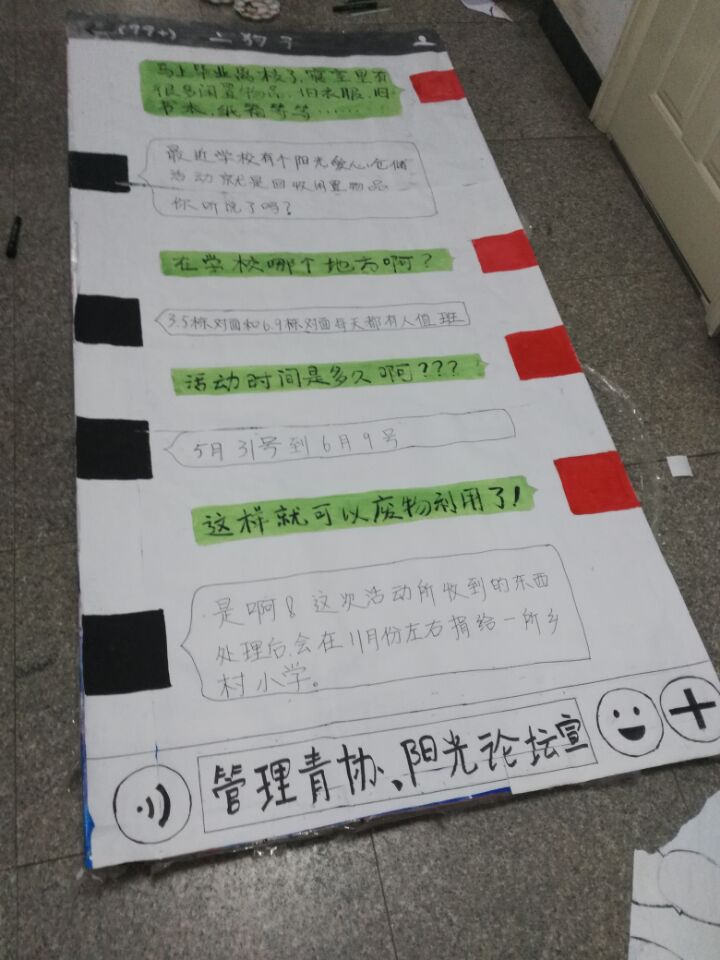 (99+) 二狗子
马上毕业离校了,寝室里有
很多闲置物品.旧衣服.旧
书本,纸箱等等……
最近学校有个阳光爱心仓储
活动就是回收闲置物品
你听说了吗?
在学校哪个地方啊?
3.5栋对面和6.9栋对面每天都有人值班
活动时间是多久啊???
5月31号到6月9号
这样就可以废物利用了!
是啊!这次活动所收到的东西
处理后,会在11月份左右捐给一所乡
村小学。
管理青协、阳光论坛宣